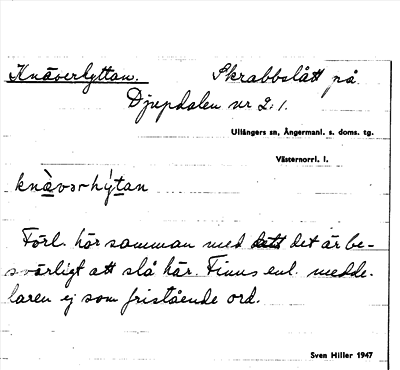 Knäverhyttan. Skrabbslått på
Djupdalen nr 2:1.
Ullångers sn, Ångermanl. s. doms. tg.
Västernorrl. l.
knä̀vərhý̀tan
Förl. hör samman med det är be-
svärligt att slå här. Finns enl. medde-
laren ej som fristående ord.
Sven Hiller 1947